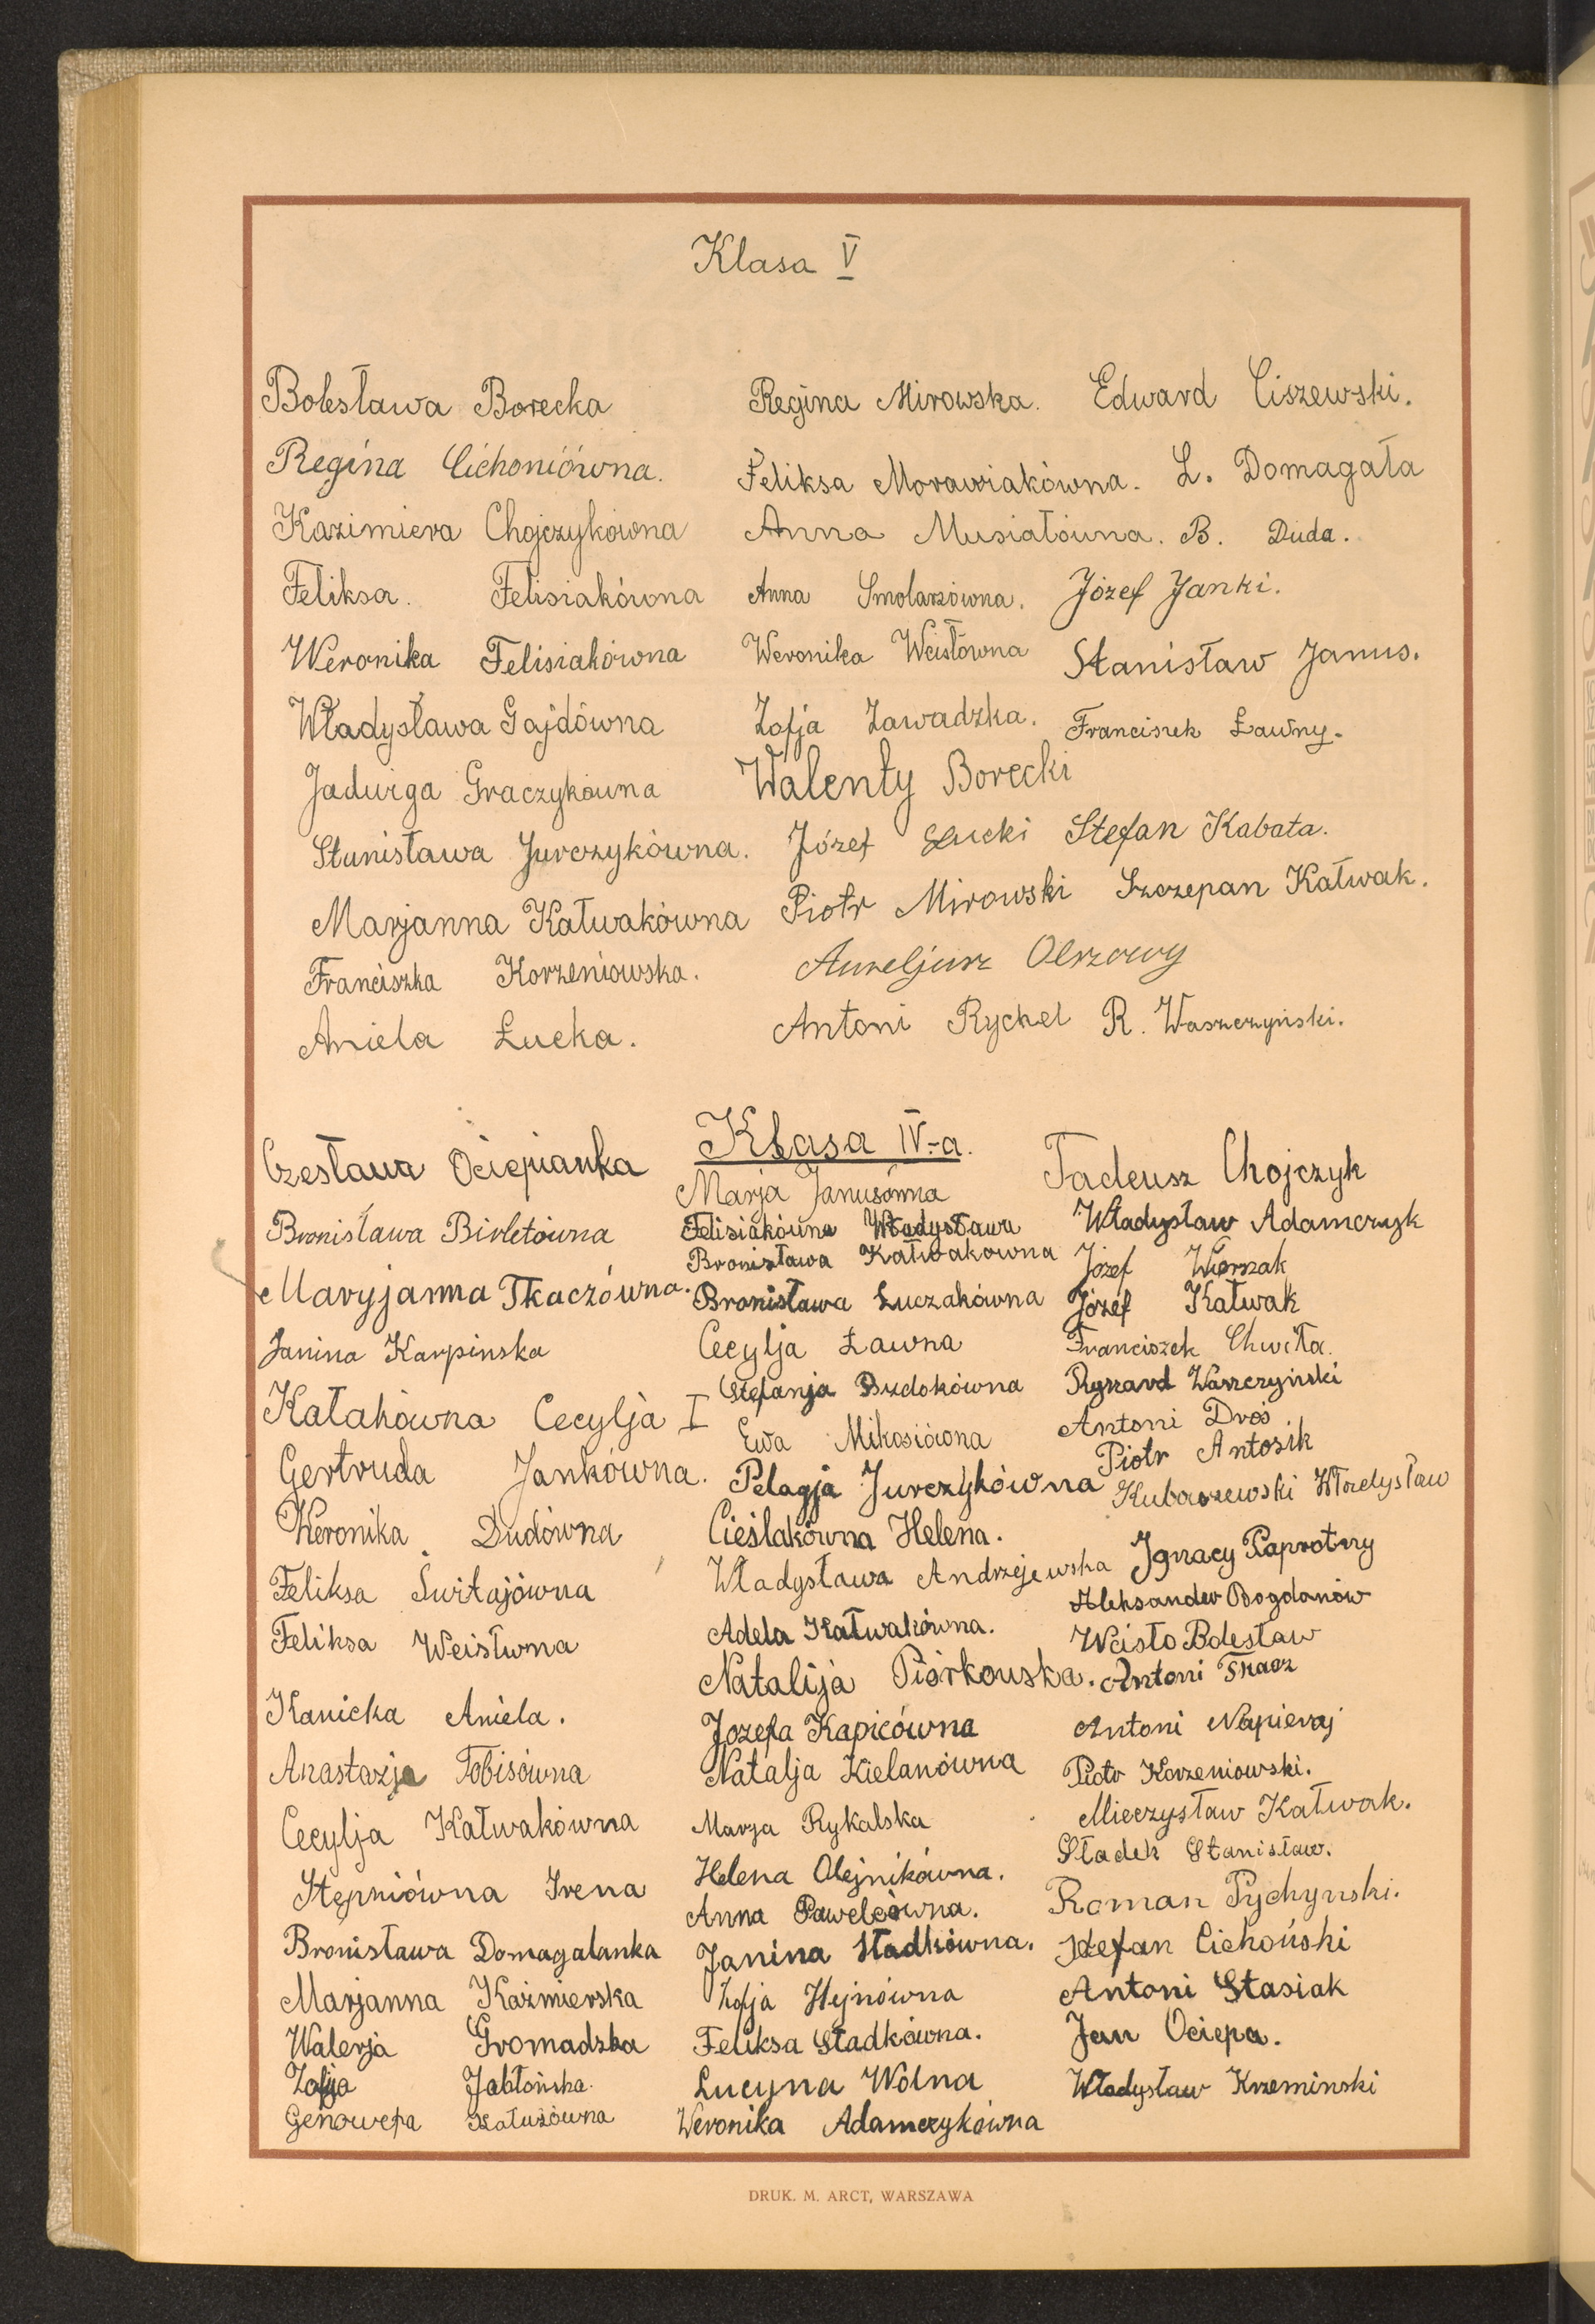 Klasa V
Bolesława Borecka
Regina Cichoniówna.
Kazimiera Chojczykówna
Feliksa. Felisiakówna
Weronika Felisiakówna
Władysława Gajdówna
Jadwiga Graczykówna
Stanisława Jurczykówna.
Marjanna Kałwakówna
Franciszka Korzeniowska.
Aniela Łucka.
Regina Mirowska.
Feliksa Morawiakówna.
Anna Musiałówna.
Anna Smolarzówna.
Weronika Weisłówna
Zofja Zawadzka.
Walenty Borecki
Józef Łucki
Piotr Mirowski
Aureljusz Olszowy
Antoni Rychel
Edward Ciszewski.
L. Domagała
B. Duda.
Józef Janki.
Stanisław Janus.
Franciszek Ławny.
Stefan Kabata.
Szczepan Kałwak.
R. Waszczyński.
Klasa IV-a.
Czesława Ociepianka
Bronisława Birletówna
Maryjanna Tkaczówna.
Janina Karpinska
Kałakówna Cecylja I
Gertruda Jankówna.
Weronika Dudówna
Feliksa Świtajówna
Feliksa Weisłwna
Kanicka Aniela.
Anastazja Tobisówna
Cecylja Kałwakówna
Stępniówna Irena
Bronisława Domagalanka
Marjanna Kaźmierska
Walerja Gromadzka
Zofja Jabłońska.
Genowefa Kałużówna
Marja Janusówna
Felisiakówna Władysława
Bronisława Kałwakowna
Bronisława Łuczakówna
Cecylja Ławna
Stefanja Dudokówna
Ewa Mikosiówna
Pelagja Jurczykówna
Cieślakówna Helena.
Władysława Andrzejewska
Adela Kałwakówna.
Natalija Piórkowska.
Jozefa Kapicówna
Natalja Kielanówna
Marja Rykalska
Helena Olejnikówna.
Anna Pawelcówna.
Janina Stadkówna.
Zofja Hejnówna
Feliksa Sładkówna.
Lucyna Wolna
Weronika Adamczykówna
Tadeusz Chojczyk
Władysław Adamczyk
Józef Wiorszak
Józef Kałwak
Franciszek Chwiła.
Ryszard Waszczyński
Antoni Droś.
Piotr Antosik
Kubaszewski Władysław
Ignacy Paprotny
Aleksander Bogdanów
Weisło Bolesław
Antoni Tkacz
Antoni Napieraj
Piotr Korzeniowski.
Mieczysław Kałwak.
Sładek Stanisław.
Roman Pychynski.
Stefan Cichoński
Antoni Stasiak
Jan Ociepa.
Władysław Krzeminski
DRUK. M. ARCT, WARSZAWA